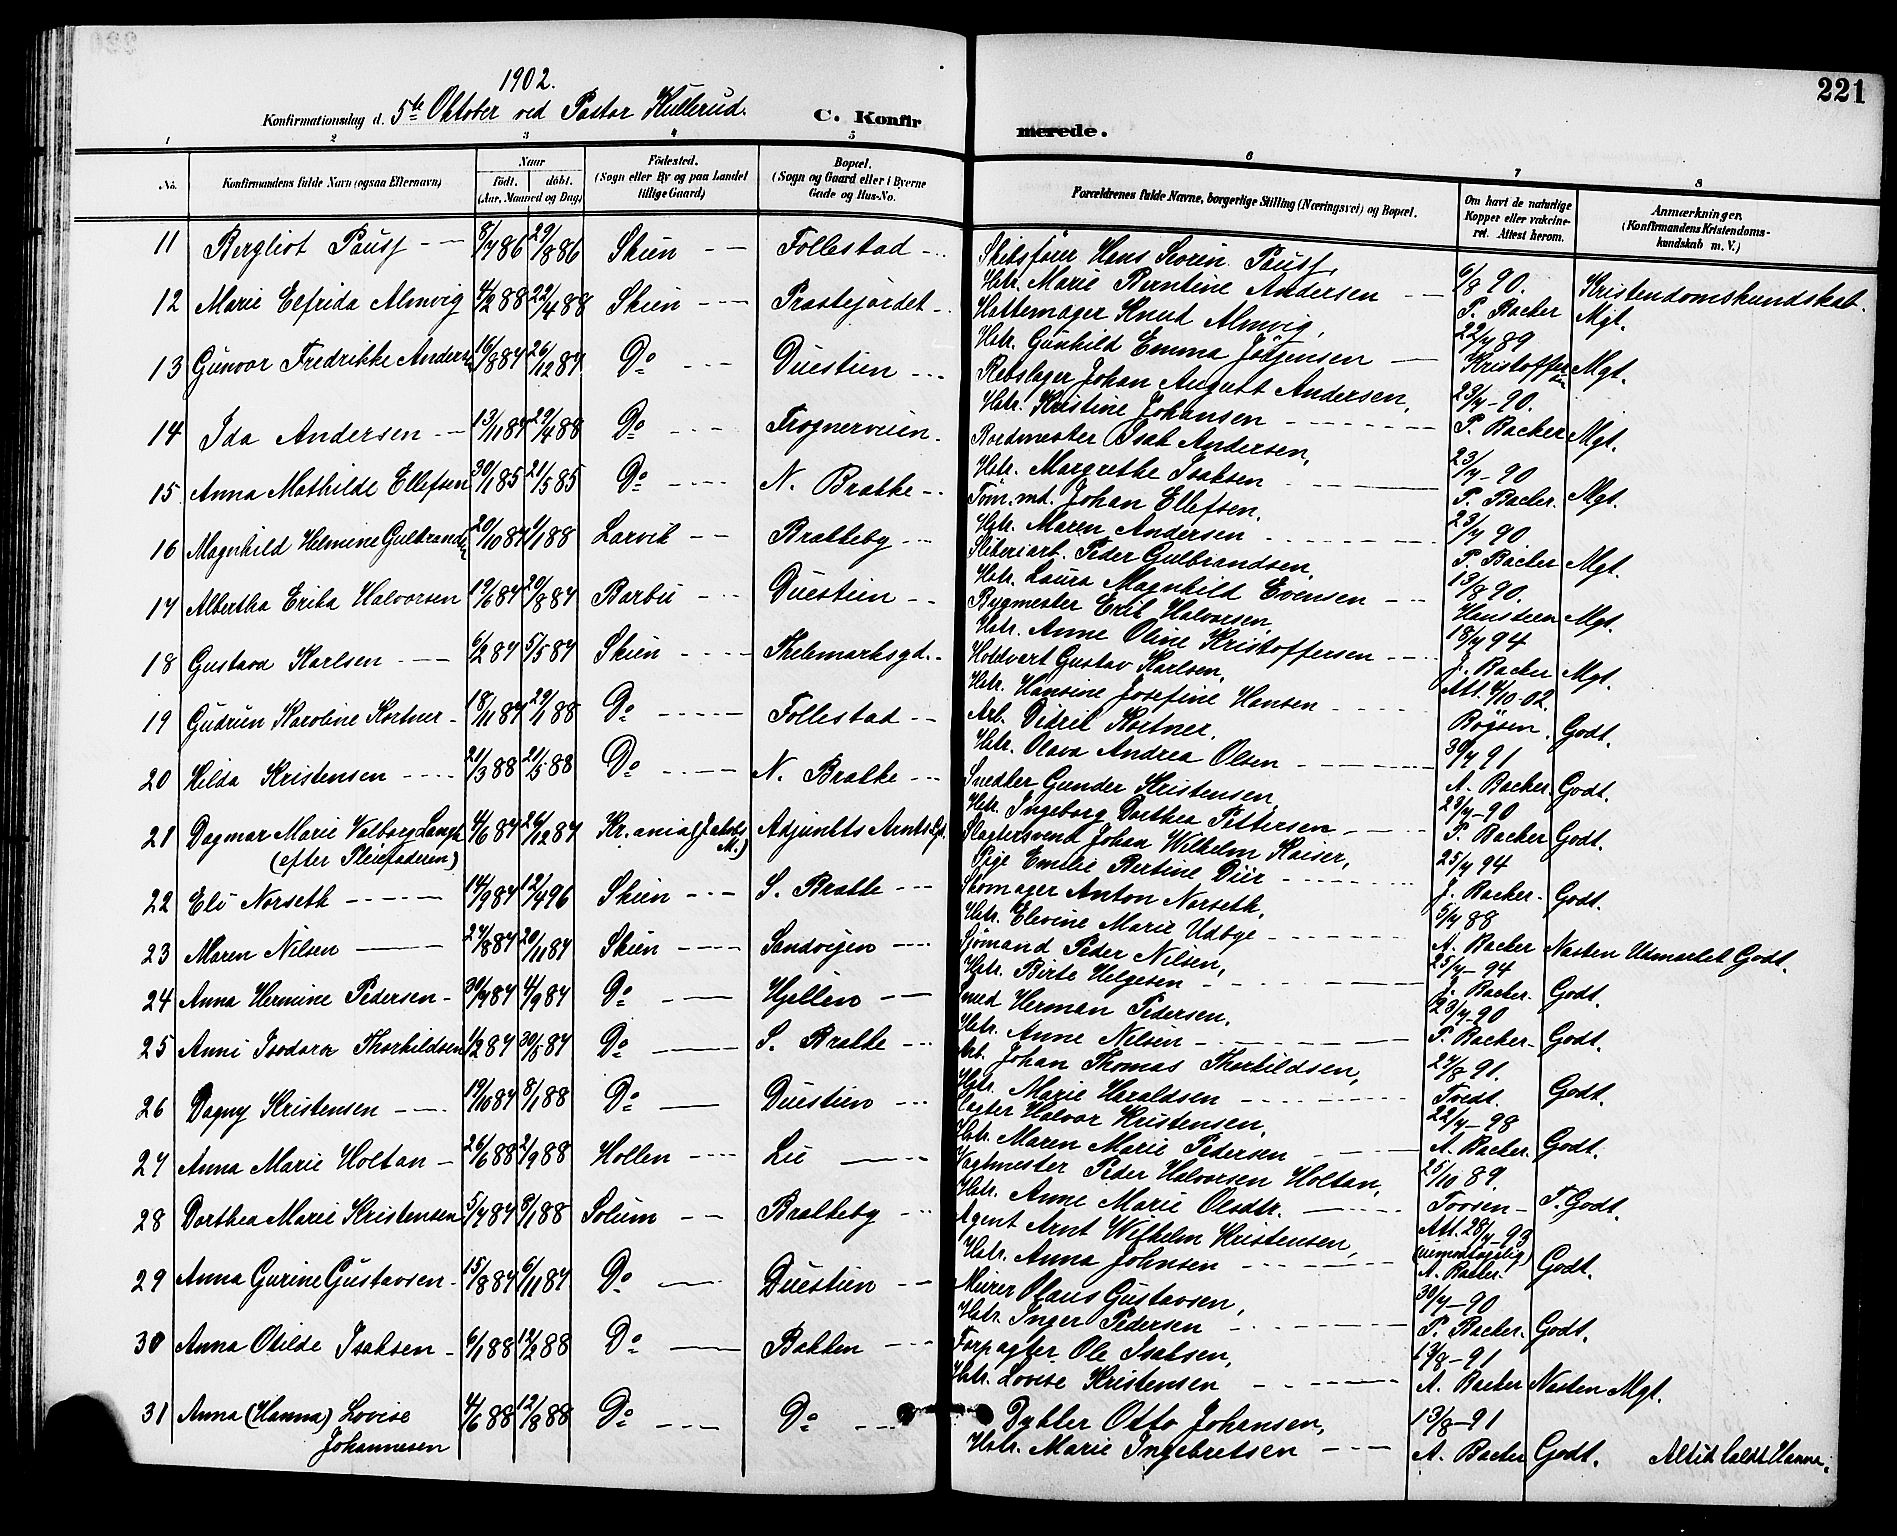 221
1902.
Konfirmationsdag d. 5te Oktober ved Pastor Kullerud.
C. Konfirmerede.
1 2 3 4 5 6 7 8
No. Konfirmandens fulde Navn (ogsaa Efternavn) Naar født. døbt. (Aar, Maaned og Dag) Fødested. (Sogn eller By og paa Landet tillige Gaard) Bopæl. (Sogn og Gaard eller i Byerne Gade og Hus-No. Forældrenes fulde Navne, borgerlige Stilling (Næringsvei) og Bopæl. Om havt de naturlige Kopper eller vakcineret. Attest herom. Anmærkninger. (Konfirmandens Kristendomskundskab m. V.)
11 Bergliot Pausf 8/7 86 29/8 86 Skien Follestad Skibsfører Hans Severin Pausf,
Hstr. Marie Berntine Andersen 6/8 90. P. Backer Kristendomskundskab Mgt.
12 Marie Elfrida Almvig 4/2 88 22/4 88 Skien Præstejordet Hattemager Knud Almvig,
Hstr. Gunhild Emma Jörgensen 22/7 89 Kristoffersen Mgt.
13 Gunvor Fredrikke Andersen 16/8 87 26/12 87. Do Duestien Rebslager Johan August Andersen,
Hstr. Kristine Johansen 23/7-90. P. Backer Mgt.
14 Ida Andersen 13/11 87 29/4 88 Do Frognerveien. Roedmester Isak Andersen,
Hstr. Margrethe Isaksen 23/7-90 P. Backer. Mgt.
15 Anna Mathilde Ellefsen 30/1 85 21/5 85 Do N. Bratke Töm.md. Johan Ellefsen,
Hstr. Maren Andersen 23/7 90. P. Backer Mgt.
16 Magnhild Helmine Gulbrandsen 20/10 87 1/1 88 Larvik Bratteby Sliberiarb. Peder Gulbrandsen,
Hstr. Laura Magnhild Evensen 13/8 90. Hansteen Mgt.
17 Albertha Erika Halvorsen 19/6 87 20/8 87 Barbu Duestien Bygmester Erik Halvorsen,
Hstr. Anne Oline Kristoffersen 18/7 94 J. Backer Mgt.
18 Gustava Karlsen 6/2 87 5/5 87 Skien Thelemarksgd. Holdvert Gustav Karlsen,
Hstr. Hansine Josefine Hansen Att. 4/10 02. Bøgsen. Godt.
19 Gudrun Karoline Kortner 18/11 87 29/1 88 Do Follestad Arb. Didrik Kortner.
Hstr. Olava Andrea Olsen 30/7 91 A. Backer. Godt.
20 Hilda Kristensen 21/3 88 21/5 88 Do N. Bratke Snedker Gunder Kristensen,
Hstr. Ingeborg Dorthea Pettersen 29/7-90 P. Backer Godt.
21 Dagmar Marie Valborg Lange (efter Pleiefaderen) 4/6 87 26/12 87 Kr.ania (Jakobs M.) Adjunkts Arntsgd. Slagtersvend Johan Wilhelm Kaiser,
Pige Emelie Bertine Diir 25/7 94 J. Backer. Godt.
22 Eli Norseth 14/9 87 12/4 96 Skien S. Bratke Skomager Anton Norseth,
Hstr. Elevine Marie Udbye 5/7 88 A. Backer Næsten Utmærket Godt.
23 Maren Nilsen 27/8 87 20/11 87 Skien Sandvigen Sjömand Peder Nilsen,
Hstr. Birte Helgesen 25/7-94 J. Backer. Godt.
24 Anna Hermine Pedersen 30/7 87 4/9 87 Do Hjellen Smed Herman Pedersen,
Hstr. Anne Nilsen 23/7-90 P. Backer. Godt.
25 Anni Isodora Thorkildsen 1/2 87 30/5 87 Do S. Bratke Arb. Johan Thomas Thorkildsen,
Hstr. Marie Haraldsen 27/8 91. Tvedt. Godt.
26 Dagny Kristensen 19/10 87 8/1 88 Do Duestien Slagter Halvor Kristensen,
Hstr. Maren Marie Pedersen 22/7-98 A. Backer. Godt.
27 Anna Marie Holtan 26/6 88 2/9 88 Hollen Lie Vagtmester Peder Halvorsen Holtan,
Hstr. Anne Marie Olsdtr. 25/10 89. Toosen T. Godt.
28 Dorthea Marie Kristensen 5/7 87 8/1 88 Solum Bratteby Agent Arnt Wilhelm Kristensen,
Hstr. Anna Johnsen Att. 28/7-93 (uimodtagelig) A. Backer. Godt.
29 Anna Gurine Gustavsen 15/8 87 6/11 87 Do Duestien Murer Olaus Gustavsen,
Hstr. Inger Pedersen 30/7-90 P. Backer. Godt.
30 Anna Otilde Isaksen 6/1 88 12/2 88 Do Bakken Forpagter Ole Isaksen,
Hstr. Lovise Kristensen 13/8-91 A. Backer Næsten Mgt.
31 Anna (Hanna) Lovise Johannesen 4/6 88 12/8 88 Do Do Dykker Otto Johansen,
Hstr. Marie Ingebretsen 13/8-91 A. Backer Godt. Altid kaldt Hanna.